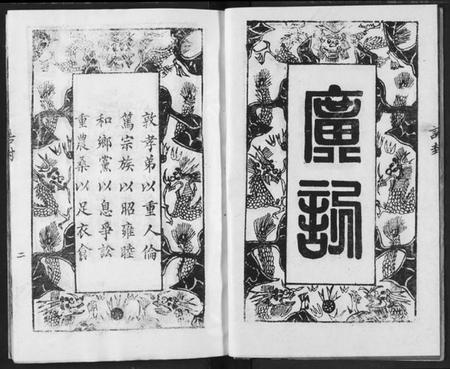 廣訓
誥封
敦孝弟以重人倫
篤宗族以昭雍睦
和鄉黨以息爭訟
重農桑以足衣食
誥封
二